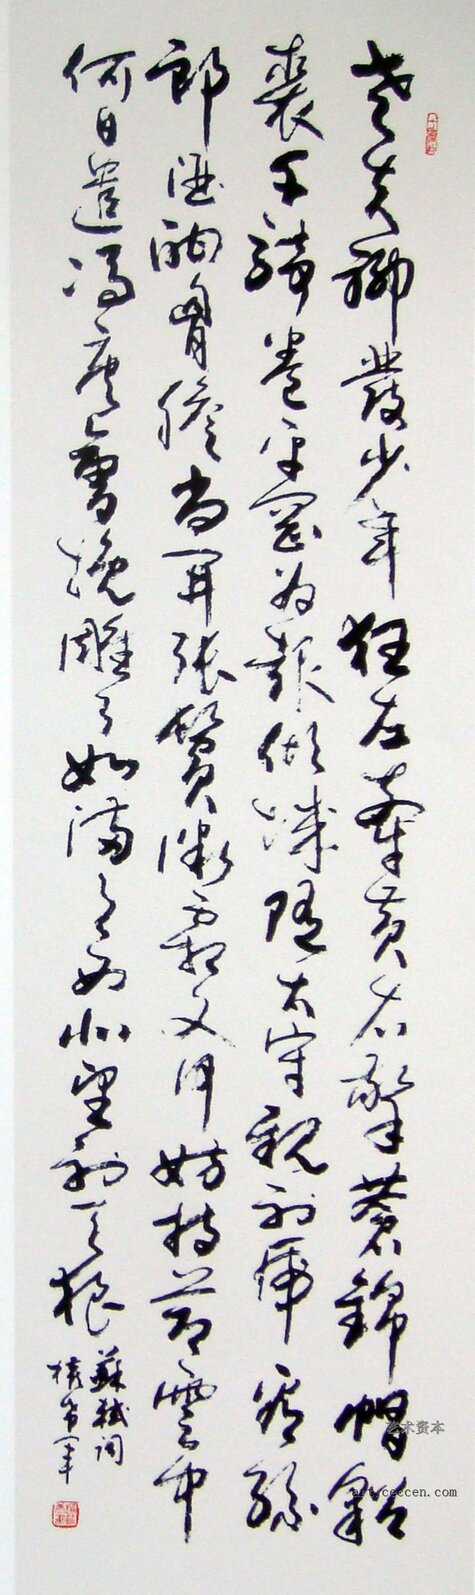 老夫聊發少年狂左牽黃右擎蒼錦帽貂
裘千騎卷平岡為報傾城隨太守親射虎看孫
郎酒酣胸膽尚開張鬢微霜又何妨持節雲中
何日遣馮唐會挽雕弓如滿月西北望射天狼
蘇軾詞
艺术资本
art.ceccen.com